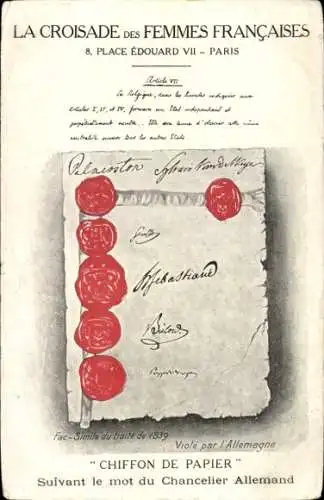 LA CROISADE DES FEMMES FRANÇAISES
8, PLACE ÉDOUARD VII – PARIS
Article VII
La Belgique, dans les limites indiquées aux
articles I, II, et IV, formera un Etat indépendant et
perpétuellement neutre. Elle sera tenue d'observer cette même
neutralité envers tous les autres Etats.
Palmerston Sylvain Van de Weyer
Senfft
H Sebastiani
Bülow
Pozzo di Borgo
Fac-Simile du traité de 1839
Violé par l'Allemagne
" CHIFFON DE PAPIER "
Suivant le mot du Chancelier Allemand